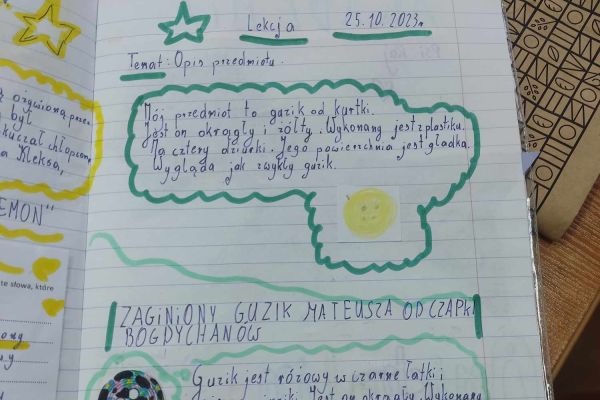 Lekcja 25.10.2023r
Temat: Opis przedmiotu.
Mój przedmiot to guzik od kurtki.
Jest on okrągły i żółty. Wykonany jest z plastiku.
Ma cztery dziurki. Jego powierzchnia jest gładka.
Wygląda jak zwykły guzik.
ZAGINIONY GUZIK MATEUSZA OD CZAPKI
BOGDYCHANÓW
Guzik jest różowy w czarne łatki i
Jest on okrągły. Wykonany
był
Aleksa,
EMON"
te słowa, które